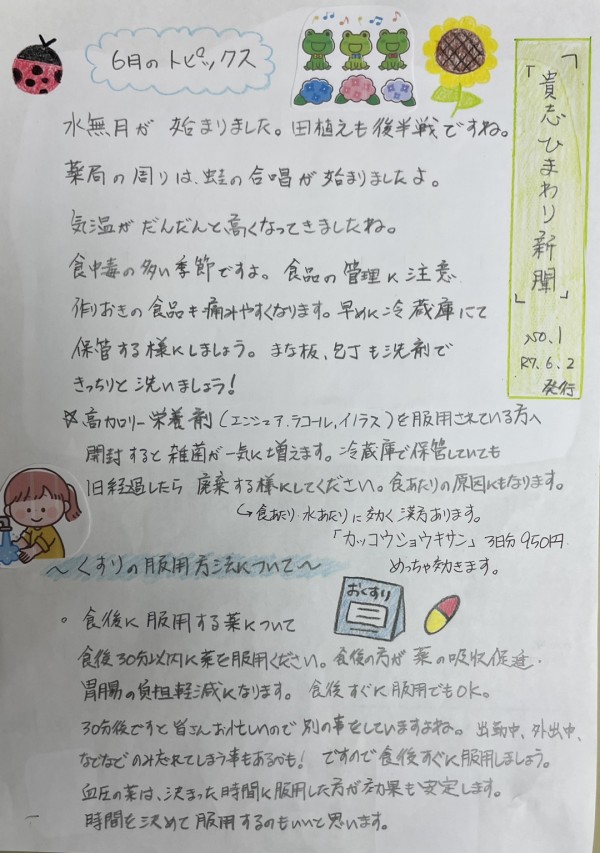 6月のトピックス
「貴志ひまわり新聞」
No.1
R7.6.2
発行
水無月が 始まりました。田植えも後半戦ですね。
薬局の周りは、蛙の合唱が始まりましたよ。
気温がだんだんと高くなってきましたね。
食中毒の多い季節ですよ。食品の管理に注意
作りおきの食品も痛みやすくなります。早めに冷蔵庫にて
保管する様にしましょう。まな板、包丁も洗剤で
きっちりと洗いましょう!
☆高カロリー栄養剤(エンシュア.ラコール,イノラス)を服用されている方へ
開封すると雑菌が一気に増えます。冷蔵庫で保管していても
1日経過したら 廃棄する様にしてください。食あたりの原因にもなります。
↳食あたり・水あたりに効く漢方あります。
「カッコウショウキサン」3日分950円.
めっちゃ効きます。
〜くすりの服用方法について〜
おくすり
。食後に服用する薬について
食後30分以内に薬を服用ください。食後の方が薬の吸収促進・
胃腸の負担軽減になります。食後すぐに服用でもOK。
30分後ですと皆さんお忙しいので別の事をしていますよね。出勤中、外出中、
などなどのみ忘れてしまう事もあるかも! ですので食後すぐに服用しましょう。
血圧の薬は、決まった時間に服用した方が効果も安定します。
時間を決めて服用するのもいいと思います。